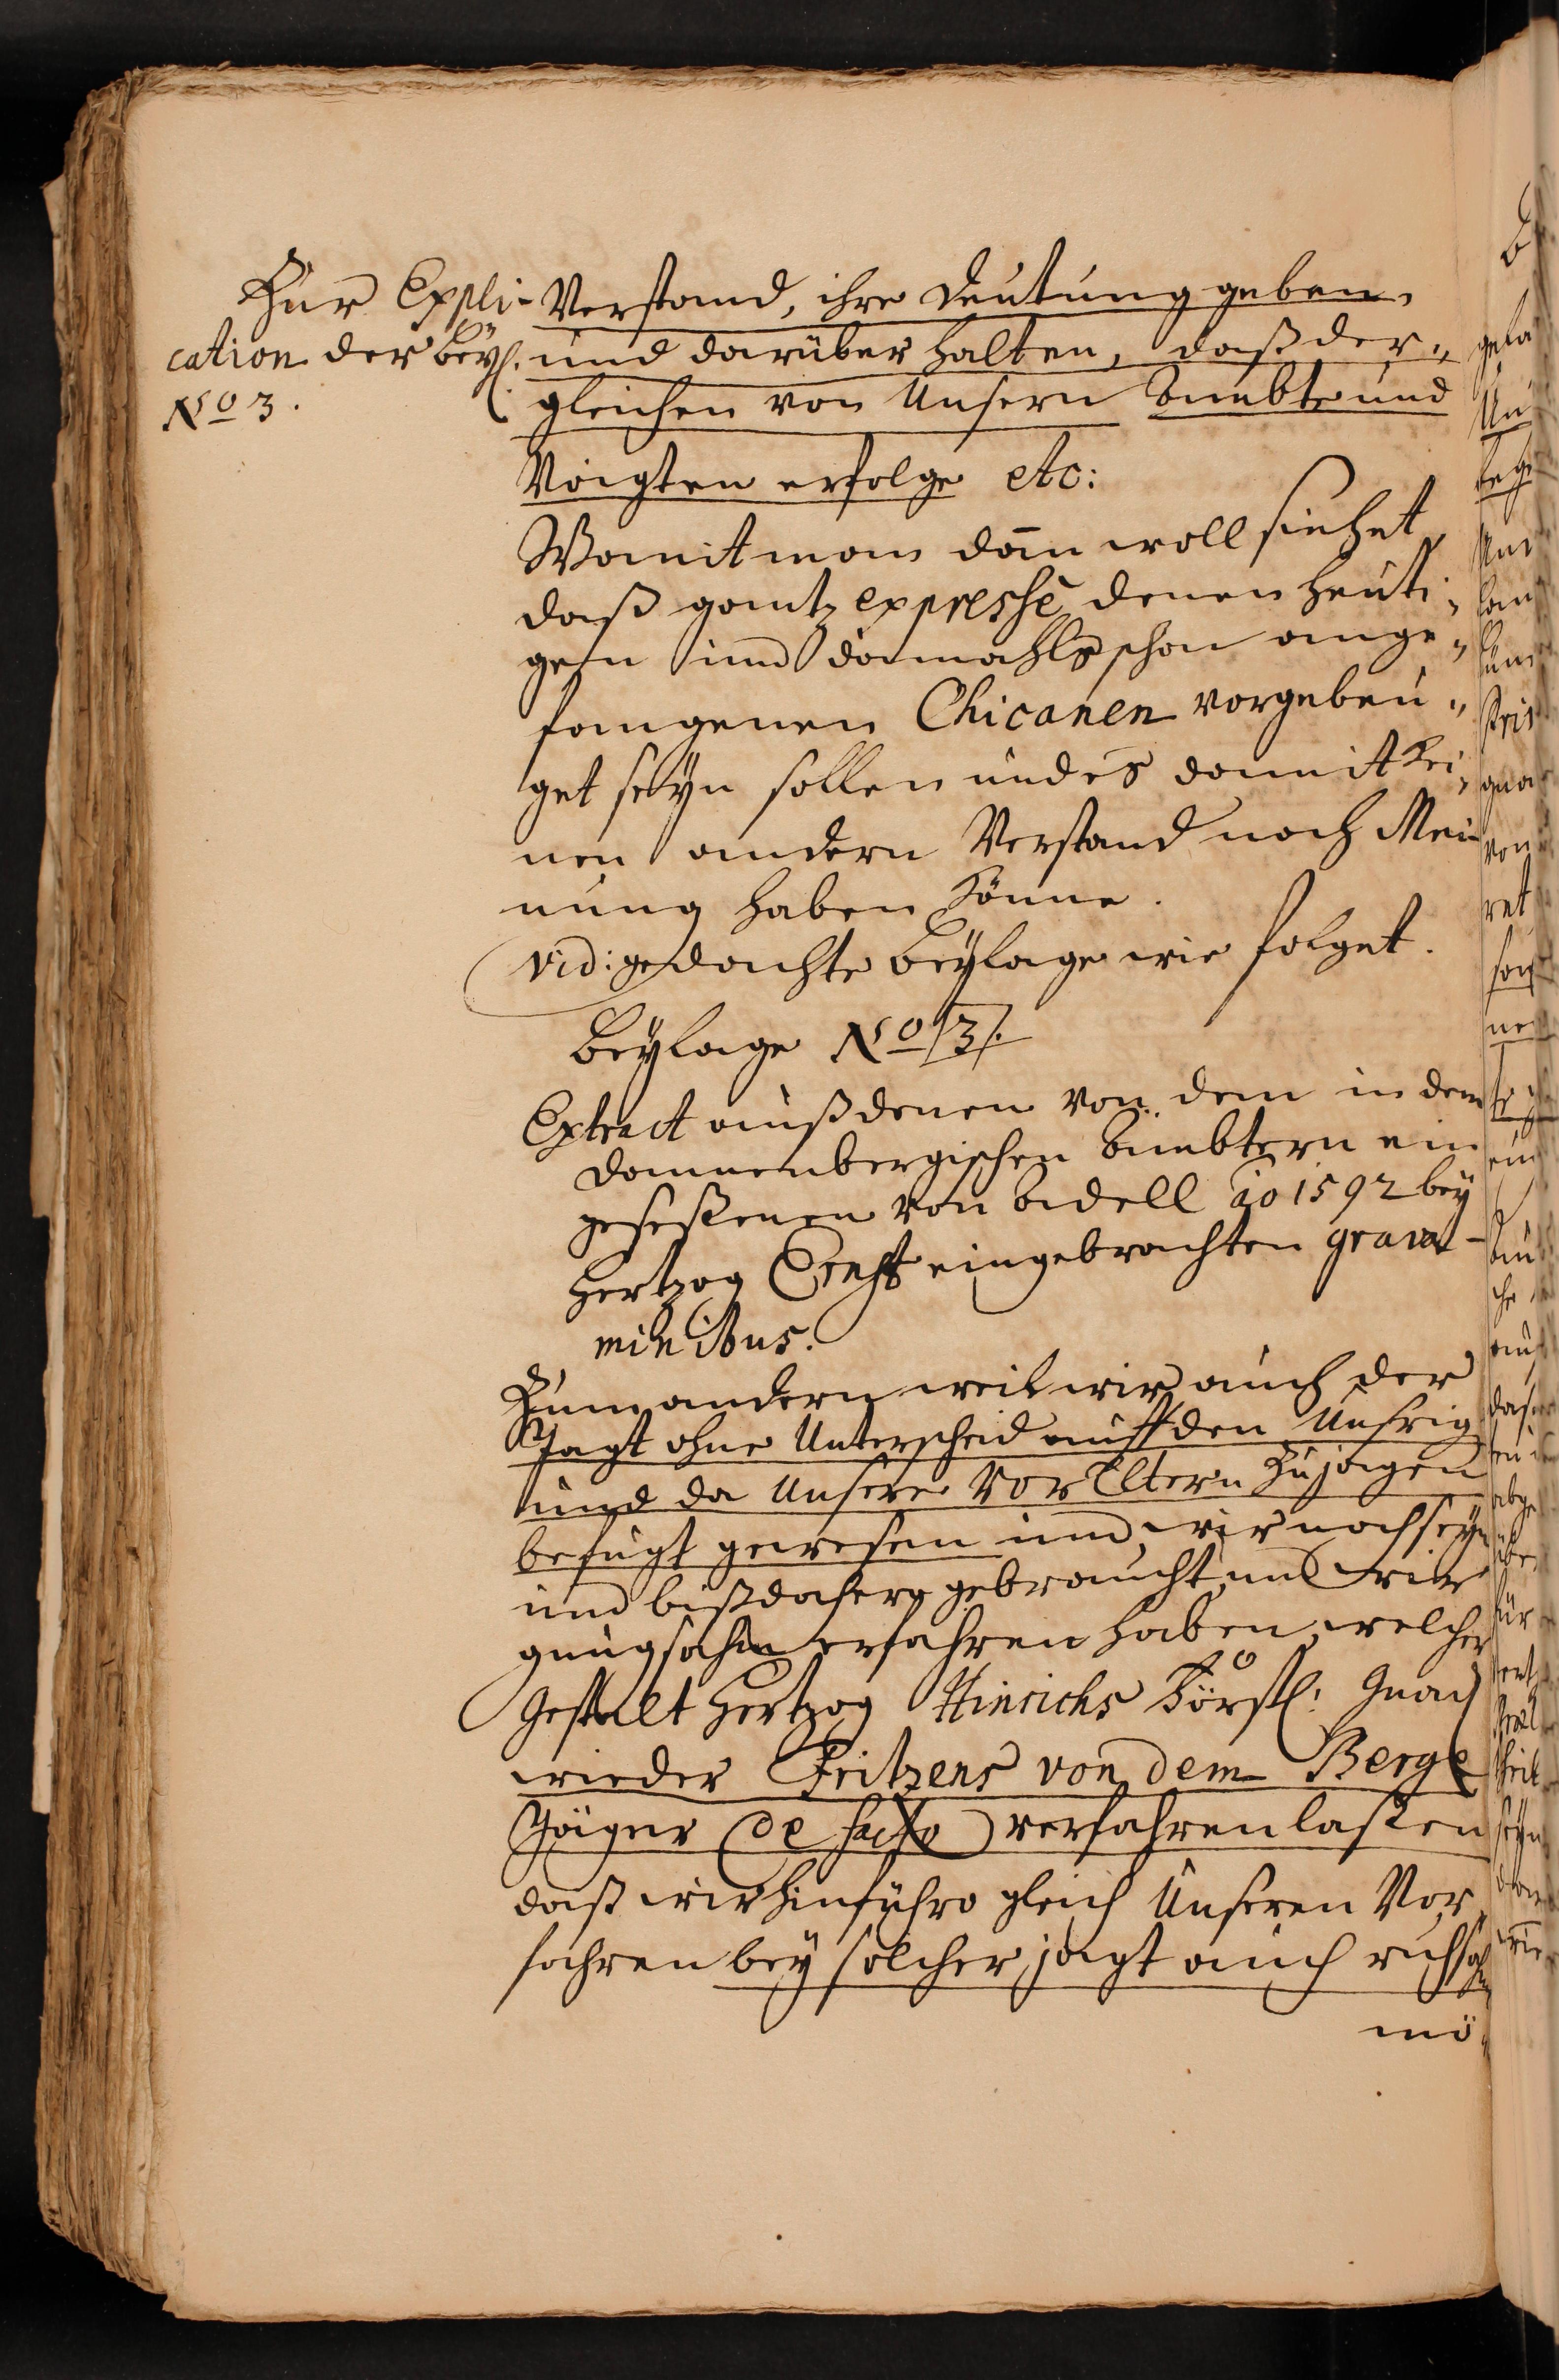 Zur Expli-
cation der Beyl.
No 3.
Verstand, ihre Deutung geben,
und darüber halten, daß der„
gleichen von Unsern Ambts und
Voigten erfolge etc:
Womit man dan̄ woll siehet,
daß gantz expressè denen heuti„
gen und damahls schon ange„
fangenen Chicanen vorgebeu„
get seyn sollen und es damit kei„
nen andern Verstand noch Mei-
nung haben könne.
vid: gedachte Beylage wie folget.
Beylage No 3.
Extract auß denen von dem in dem
Dannenbergischen Ambtern ein
geseßenen von Adell ao 1592 bey
Hertzog Ernst eingebrachten grava-
minibus.
Zum andern weil wir auch der
Jagt ohne Unterscheid auff den Unsrig
und da Unsere Vor Eltern zu jagen
befugt gewesen und wir noch seyn
und bißdahero gebraucht und wir
gnugsahm erfahren haben, welcher
Gestalt Hertzog Hinrichs Fürstl: Gnad
wieder Fritzens von dem Berge
Jäger (de facto) verfahren laßen
daß wir hinführo gleich Unseren Vor„
fahren bey solcher jagt auch ruhsahm
mö„